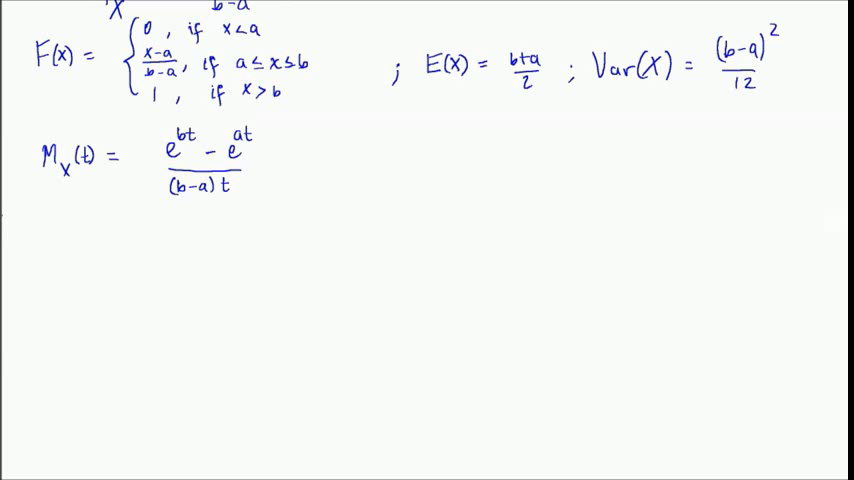 X b-a
F(x) = { 0, if x<a
x-a/b-a, if a≤x≤b
1, if x>b
; E(X) = b+a/2 ; Var(X) = (b-a)²/12
M_X(t) = e^bt - e^at / (b-a)t